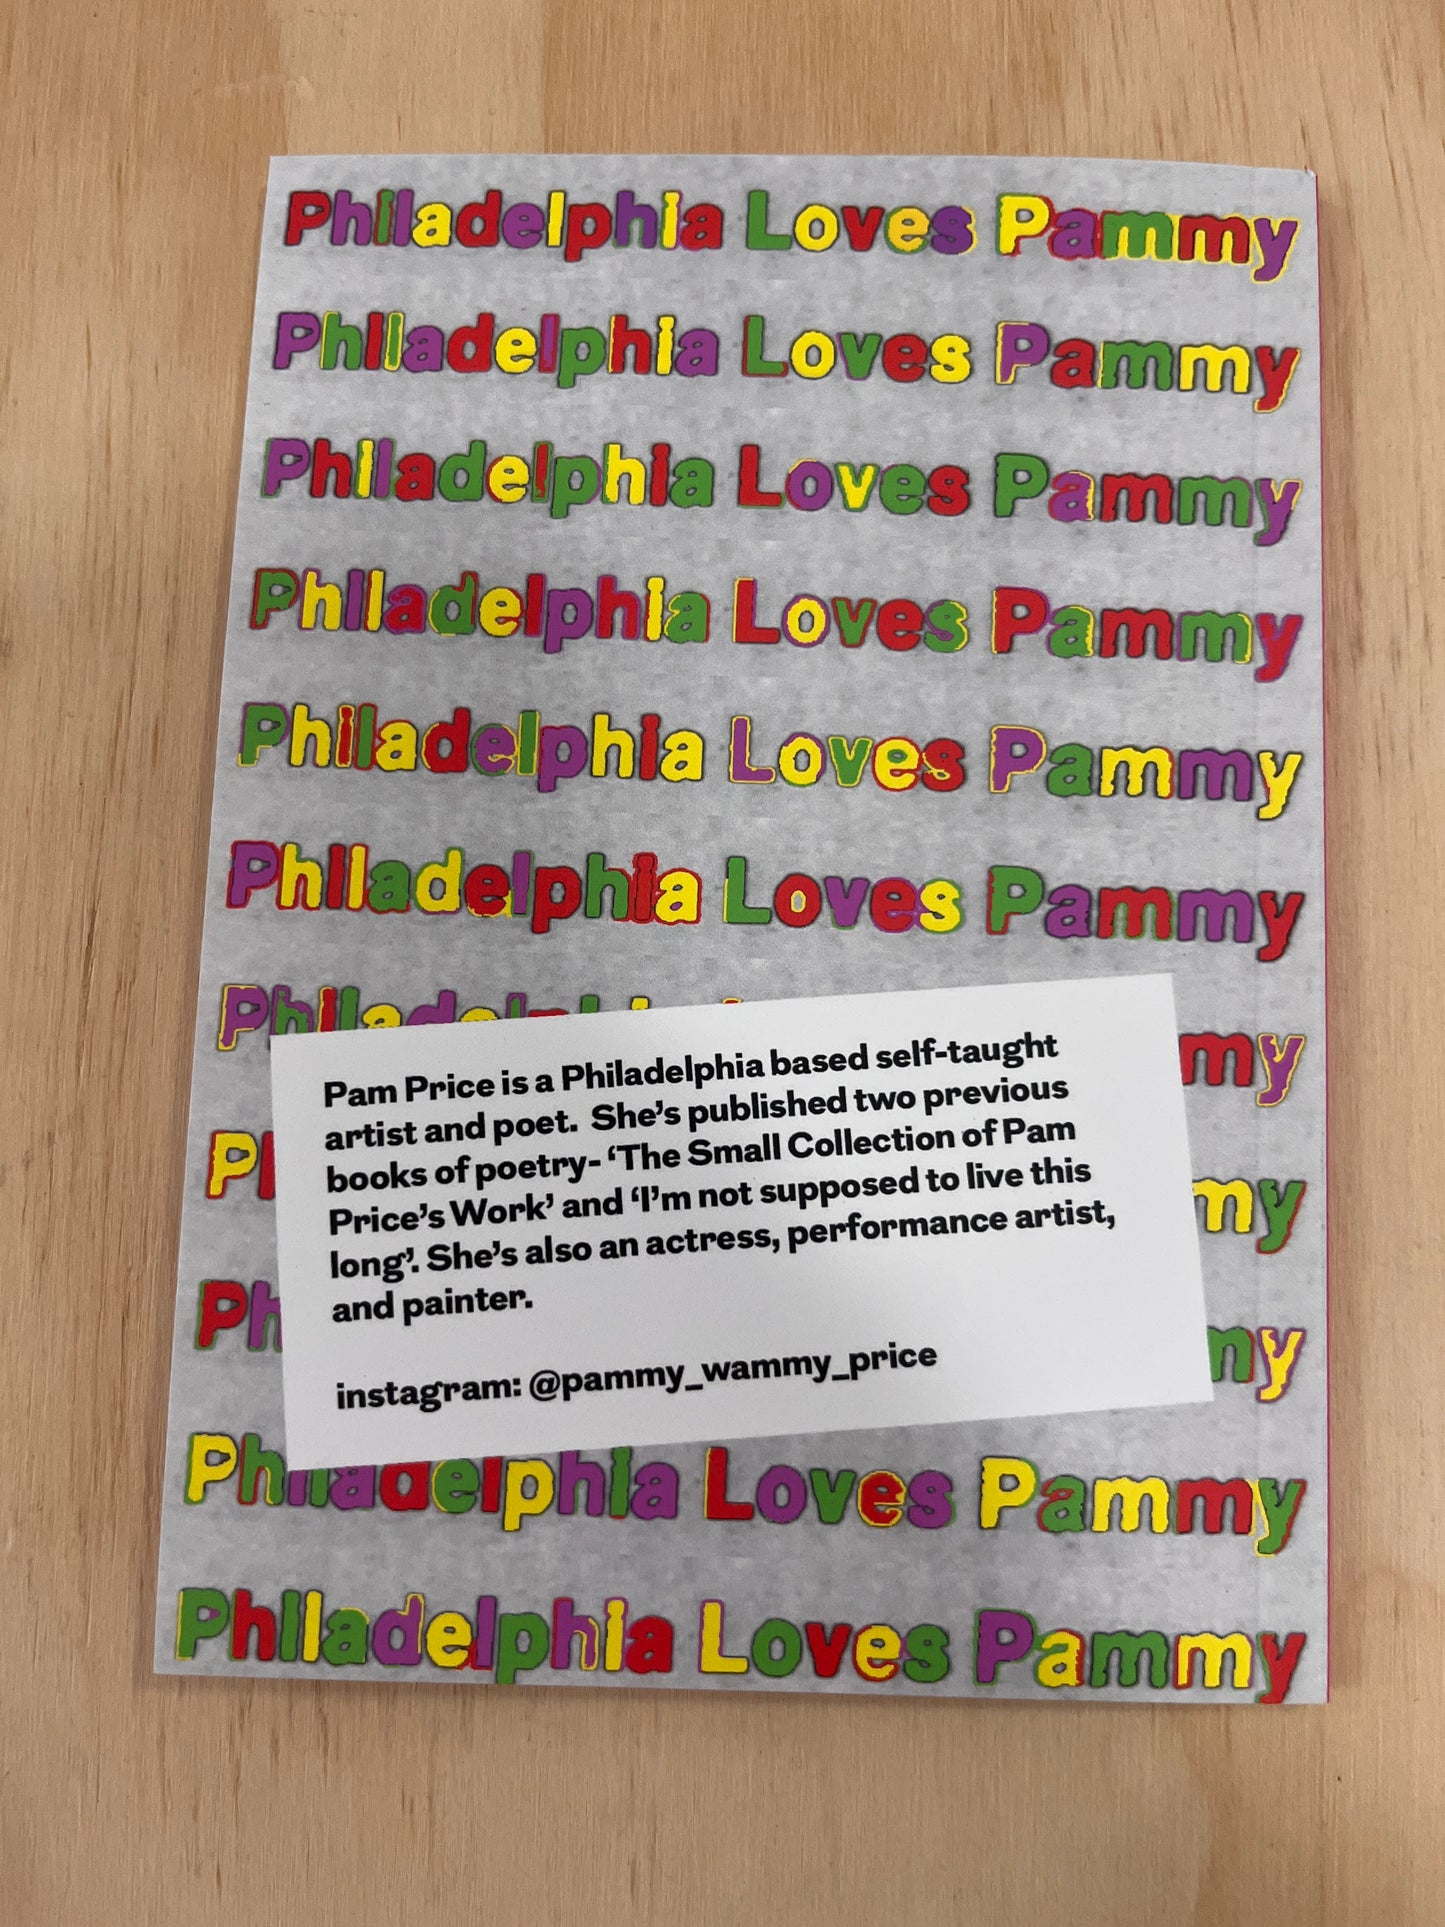 Philadelphia Loves Pammy
Philadelphia Loves Pammy
Philadelphia Loves Pammy
Philadelphia Loves Pammy
Philadelphia Loves Pammy
Philadelphia Loves Pammy
Philadelphia
Pam Price is a Philadelphia based self-taught
artist and poet. She's published two previous
books of poetry- ‘The Small Collection of Pam
Price's Work’ and ‘I'm not supposed to live this
long’. She's also an actress, performance artist,
and painter.
instagram: @pammy_wammy_price
Philadelphia Loves Pammy
Philadelphia Loves Pammy